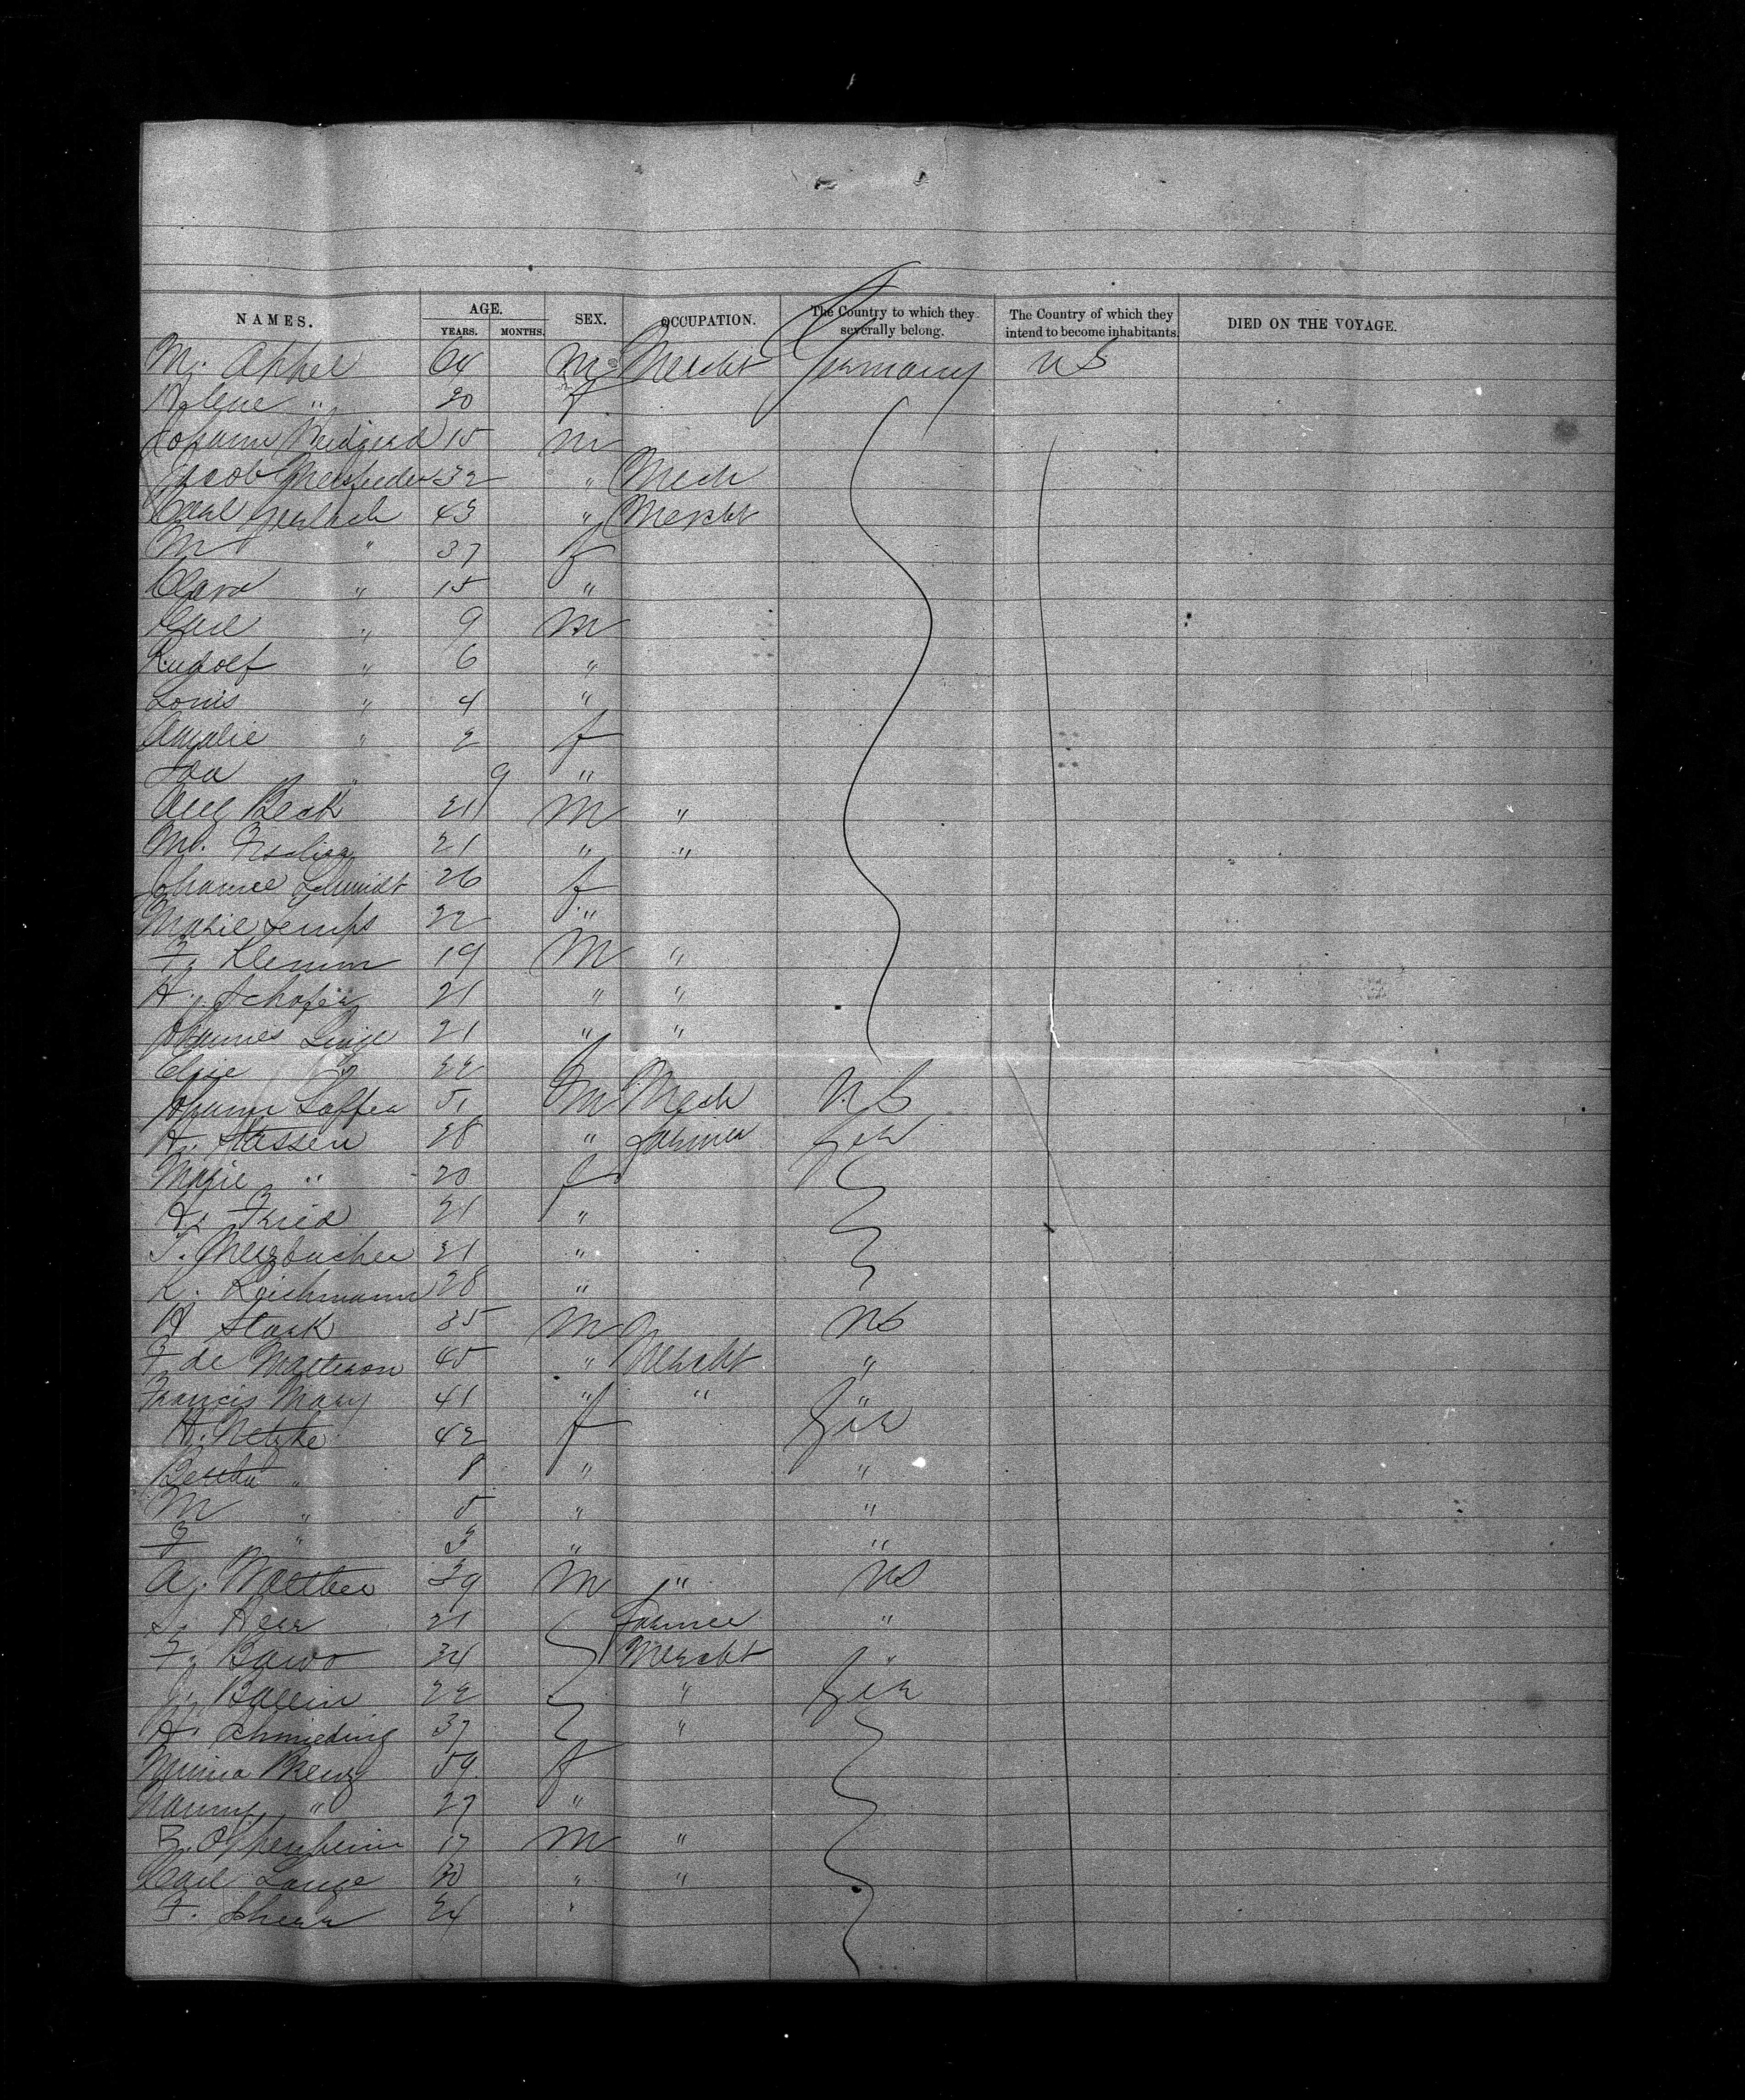 NAMES. AGE. YEARS. MONTHS. SEX. OCCUPATION. The Country to which they severally belong. The Country of which they intend to become inhabitants. DIED ON THE VOYAGE.
M. Appel 64 M Mercht Germany US
Helene " 20 f
Johann 15 m
Jacob 32 " Mech
Carl Gerlach 43 " Mercht
M " 37 f
Clara " 15 "
Carl " 9 M
Rudolf " 6 "
Louis " 4 "
Amalie " 2 f
Ida " 9 "
Aug Beck 21 M "
M. 21 " "
Johanne Schmidt 26 f
Marie 22 "
F. Klemm 19 M "
H. Schafer 21 " "
Johannes 21 " "
Elise " 22 f
Johann 51 M Mech US
H. Stassen 28 " Farmer Ger
Marie " 20 f
H. Fried 21 "
T. Merzbacher 21 "
L. Leichmann 28 "
H Stark 35 M US
F. de 45 " Mercht "
Francis Mary 41 " " "
H. Netzke 42 f Ger
Bertha " 8 " "
M " 5 " "
F " 3 " "
A. Walther 39 M " US
21 Farmer "
F. 34 Mercht "
J. Ballin 22 " Ger
H. Schmieding 37 "
Minna 59 f
" 27 "
Oppenheim 17 M "
Carl Lange 30 " "
F. 24 "